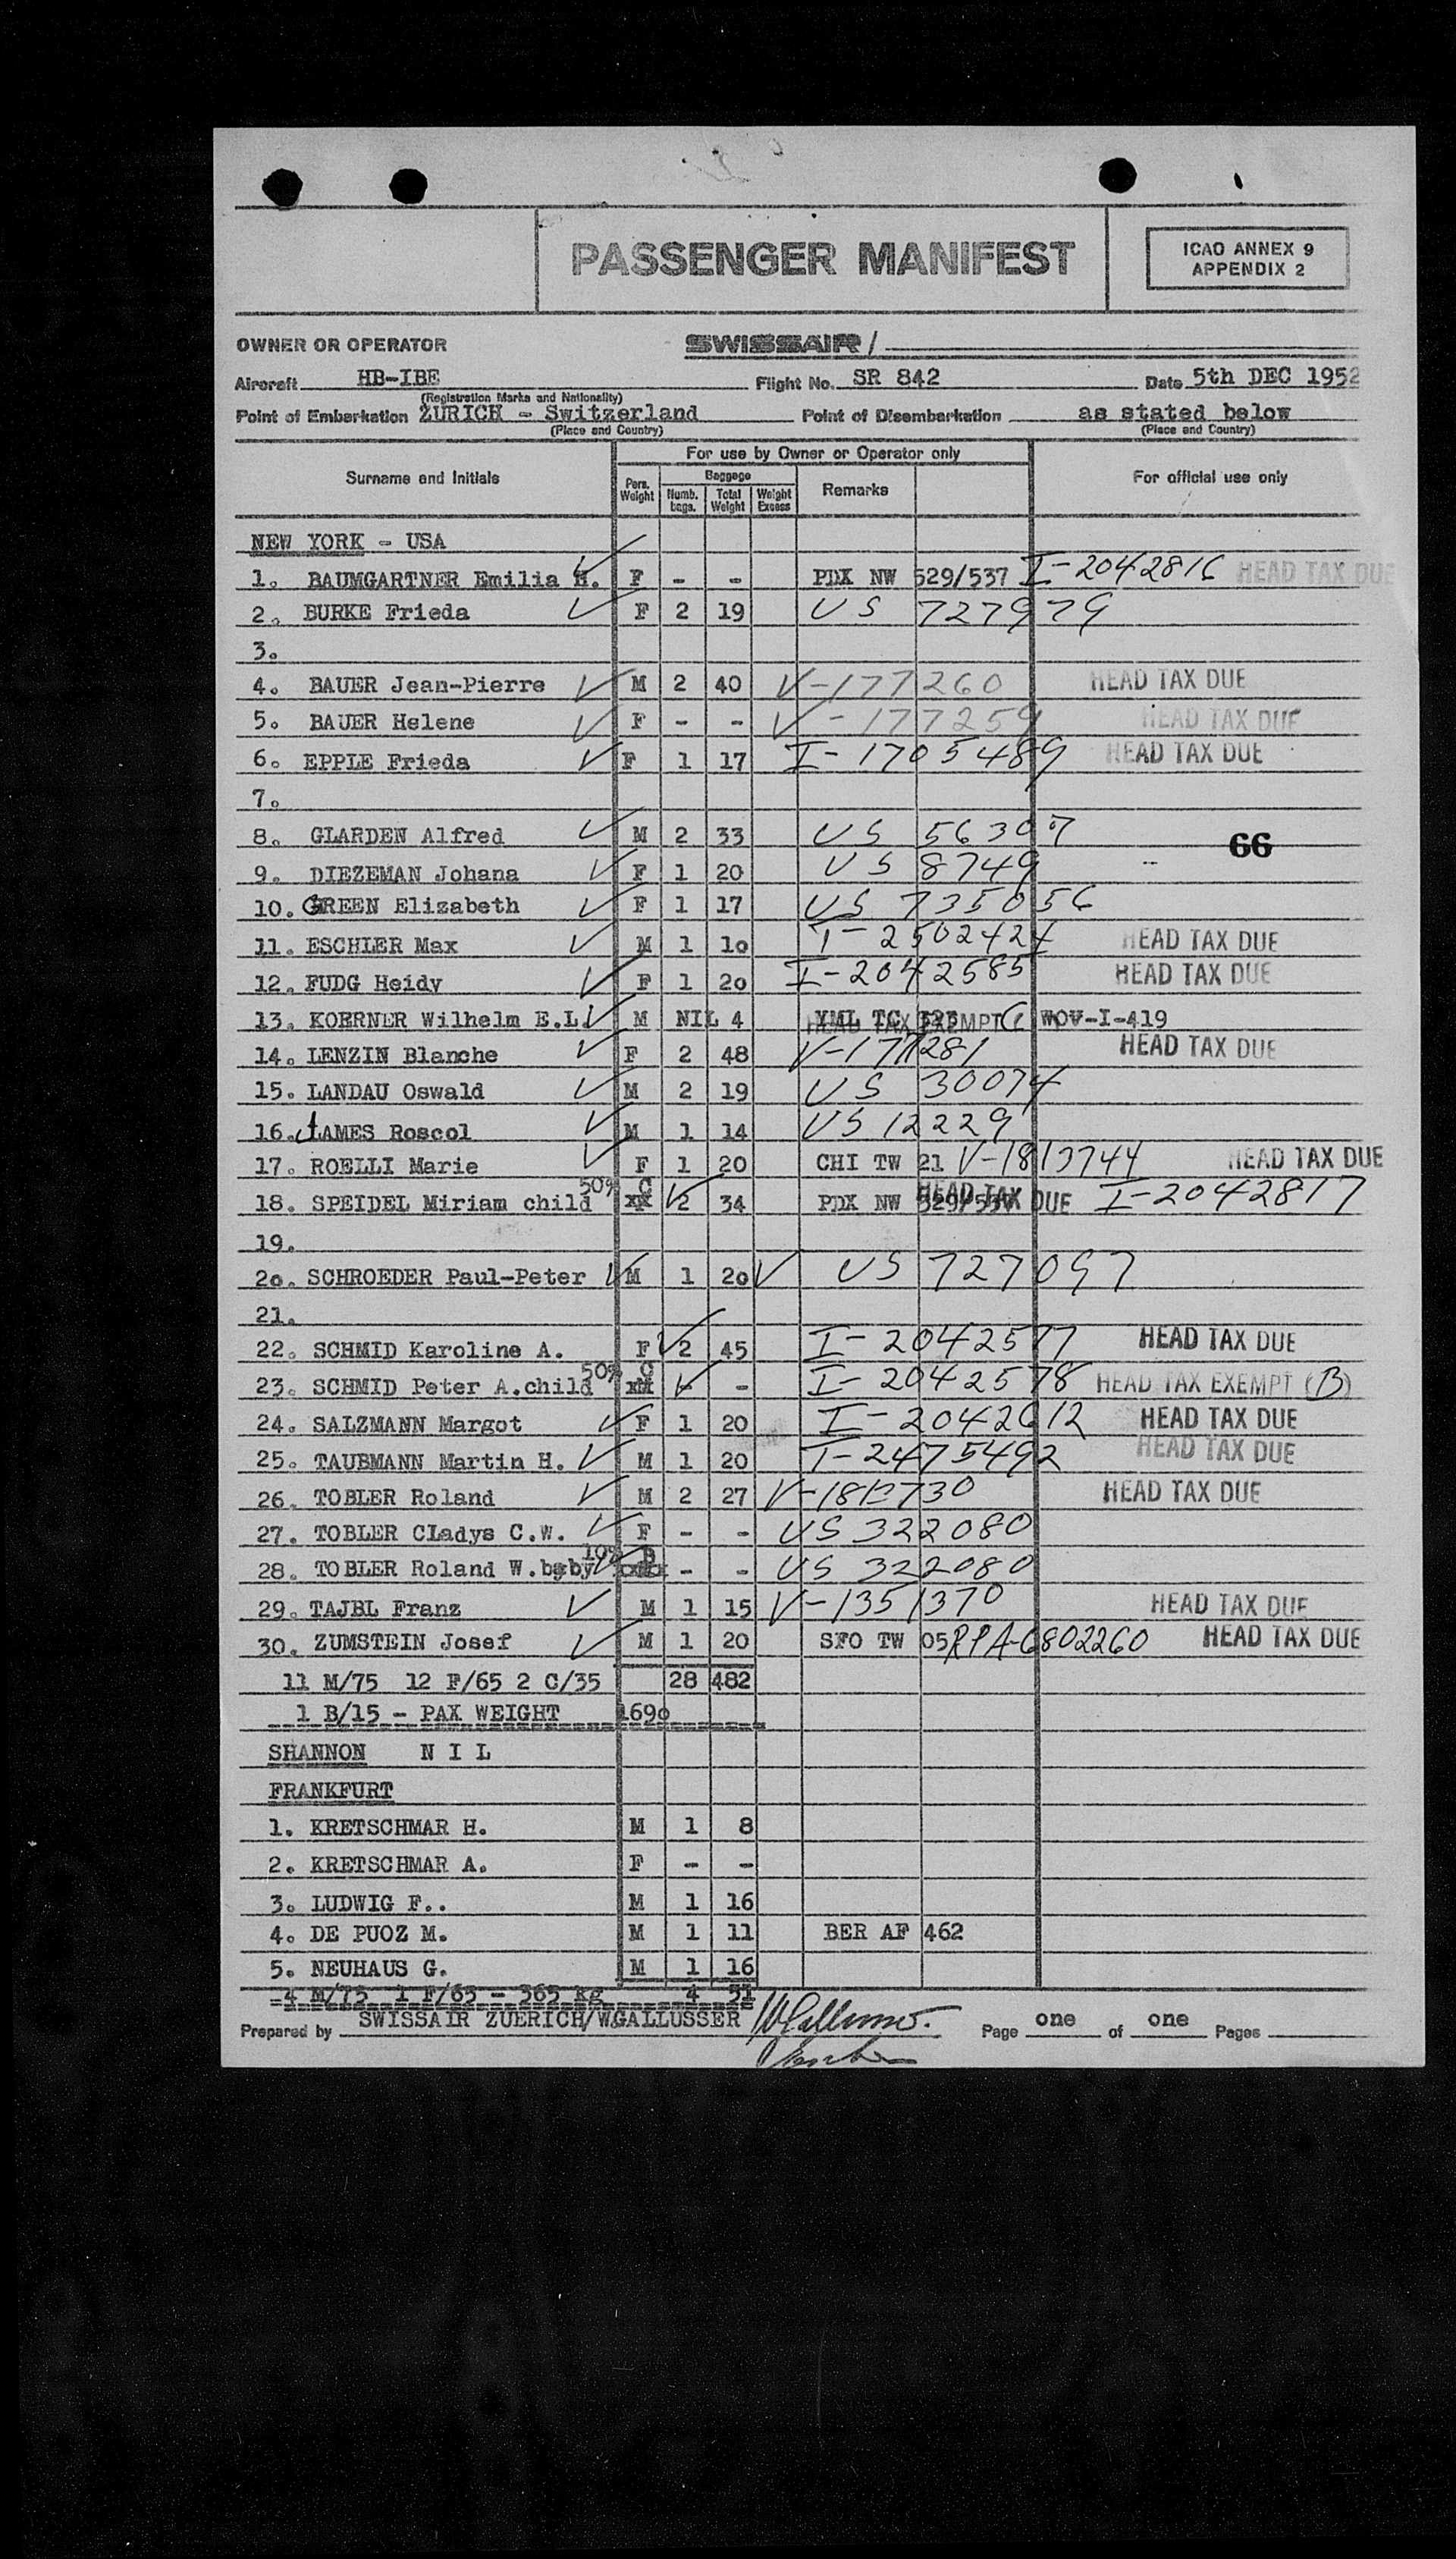 PASSENGER MANIFEST
ICAO ANNEX 9
APPENDIX 2
OWNER OR OPERATOR SWISSAIR/
Aircraft HB-IBE Flight No. SR 842 Date 5th DEC 1952
(Registration Marks and Nationality)
Point of Embarkation ZURICH - Switzerland Point of Disembarkation as stated below
(Place and Country) (Place and Country)
For use by Owner or Operator only
Surname and Initials Pers. Weight Baggage Numb. bags. Total Weight Weight Excess Remarks For official use only
NEW YORK - USA
1. BAUMGARTNER Emilia H. F - - PDX NW 529/537 I-2042816 HEAD TAX DUE
2. BURKE Frieda F 2 19 US 727979
3.
4. BAUER Jean-Pierre M 2 40 V-177260 HEAD TAX DUE
5. BAUER Helene F - - V-177259 HEAD TAX DUE
6. EPPLE Frieda F 1 17 I-1705489 HEAD TAX DUE
7.
8. GLARDEN Alfred M 2 33 US 56307
66
9. DIEZEMAN Johana F 1 20 US 8749
10. GREEN Elizabeth F 1 17 US 735056
11. ESCHLER Max M 1 1o I-2502424 HEAD TAX DUE
12. FUDG Heidy F 1 2o I-2042585 HEAD TAX DUE
13. KOERNER Wilhelm E.L. M NIL 4 YML TC HEAD TAX EXEMPT WOV-I-419
14. LENZIN Blanche F 2 48 V-177281 HEAD TAX DUE
15. LANDAU Oswald M 2 19 US 30074
16. JAMES Roscol M 1 14 US 12229
17. ROELLI Marie F 1 20 CHI TW 21 V-1813744 HEAD TAX DUE
18. SPEIDEL Miriam child 50% C 2 34 PDX NW 529/537 HEAD TAX DUE I-2042817
19.
2o. SCHROEDER Paul-Peter M 1 2o US 727097
21.
22. SCHMID Karoline A. F 2 45 I-2042577 HEAD TAX DUE
23. SCHMID Peter A.child 50% C - - I-2042578 HEAD TAX EXEMPT (B)
24. SALZMANN Margot F 1 20 I-2042612 HEAD TAX DUE
25. TAUBMANN Martin H. M 1 20 I-2475492 HEAD TAX DUE
26. TOBLER Roland M 2 27 HEAD TAX DUE
27. TOBLER CLadys C.W. F - - US 322080
28. TOBLER Roland W.baby 10% B - - US 322080
29. TAJBL Franz M 1 15 V-1351370 HEAD TAX DUE
30. ZUMSTEIN Josef M 1 20 SFO TW 05 RPA-6802260 HEAD TAX DUE
11 M/75 12 F/65 2 C/35 28 482
1 B/15 - PAX WEIGHT 169o
SHANNON N I L
FRANKFURT
1. KRETSCHMAR H. M 1 8
2. KRETSCHMAR A. F - -
3. LUDWIG F.. M 1 16
4. DE PUOZ M. M 1 11 BER AF 462
5. NEUHAUS G. M 1 16
=4 M/75 1 F/65 - 365 kg 4 51
Prepared by SWISSAIR ZUERICH/W.GALLUSSER WGallusser. Page one of one Pages